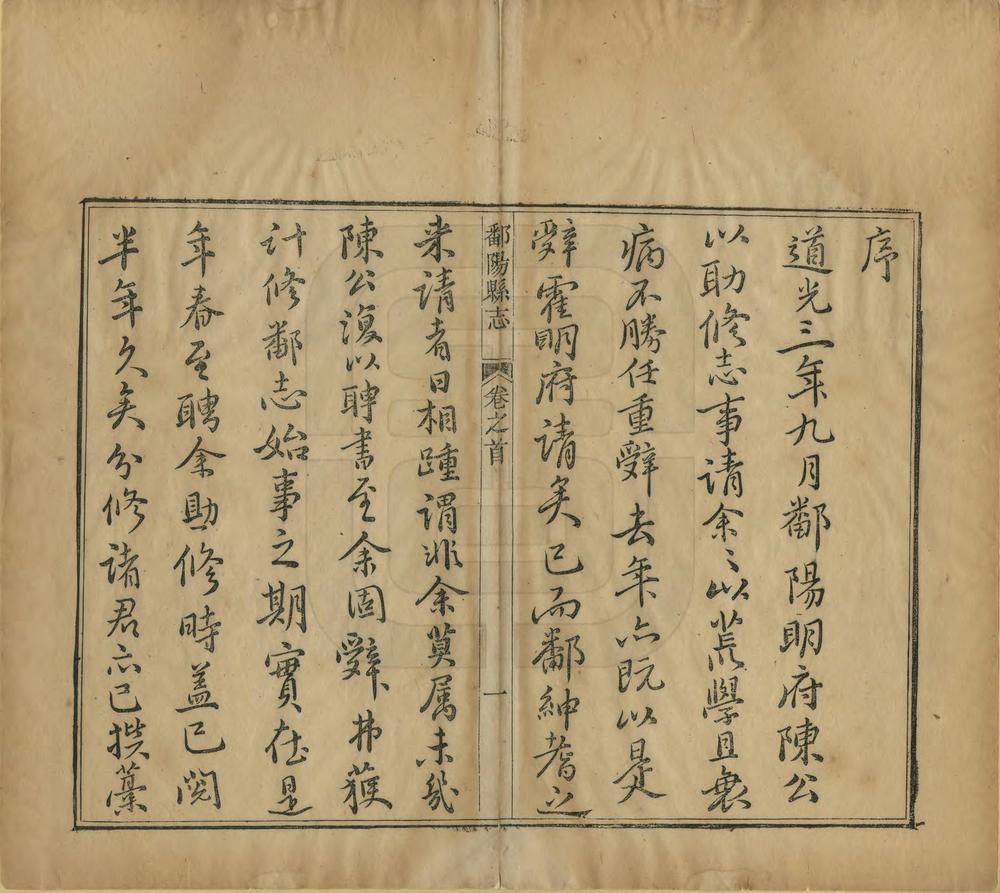 序
道光三年九月鄱陽明府陳公
以助修志事請余〻以荒學且衰
病不勝任重辭去年亦既以是
辭霍明府請矣已而鄱紳耆之
鄱陽縣志 卷之首 一
来請者日相踵謂非余莫属未幾
陳公復以聘書至余固辭弗獲
计修鄱志始事之期實在是
年春至聘余助修時蓋已閲
半年久矣分修諸君亦已撰藁